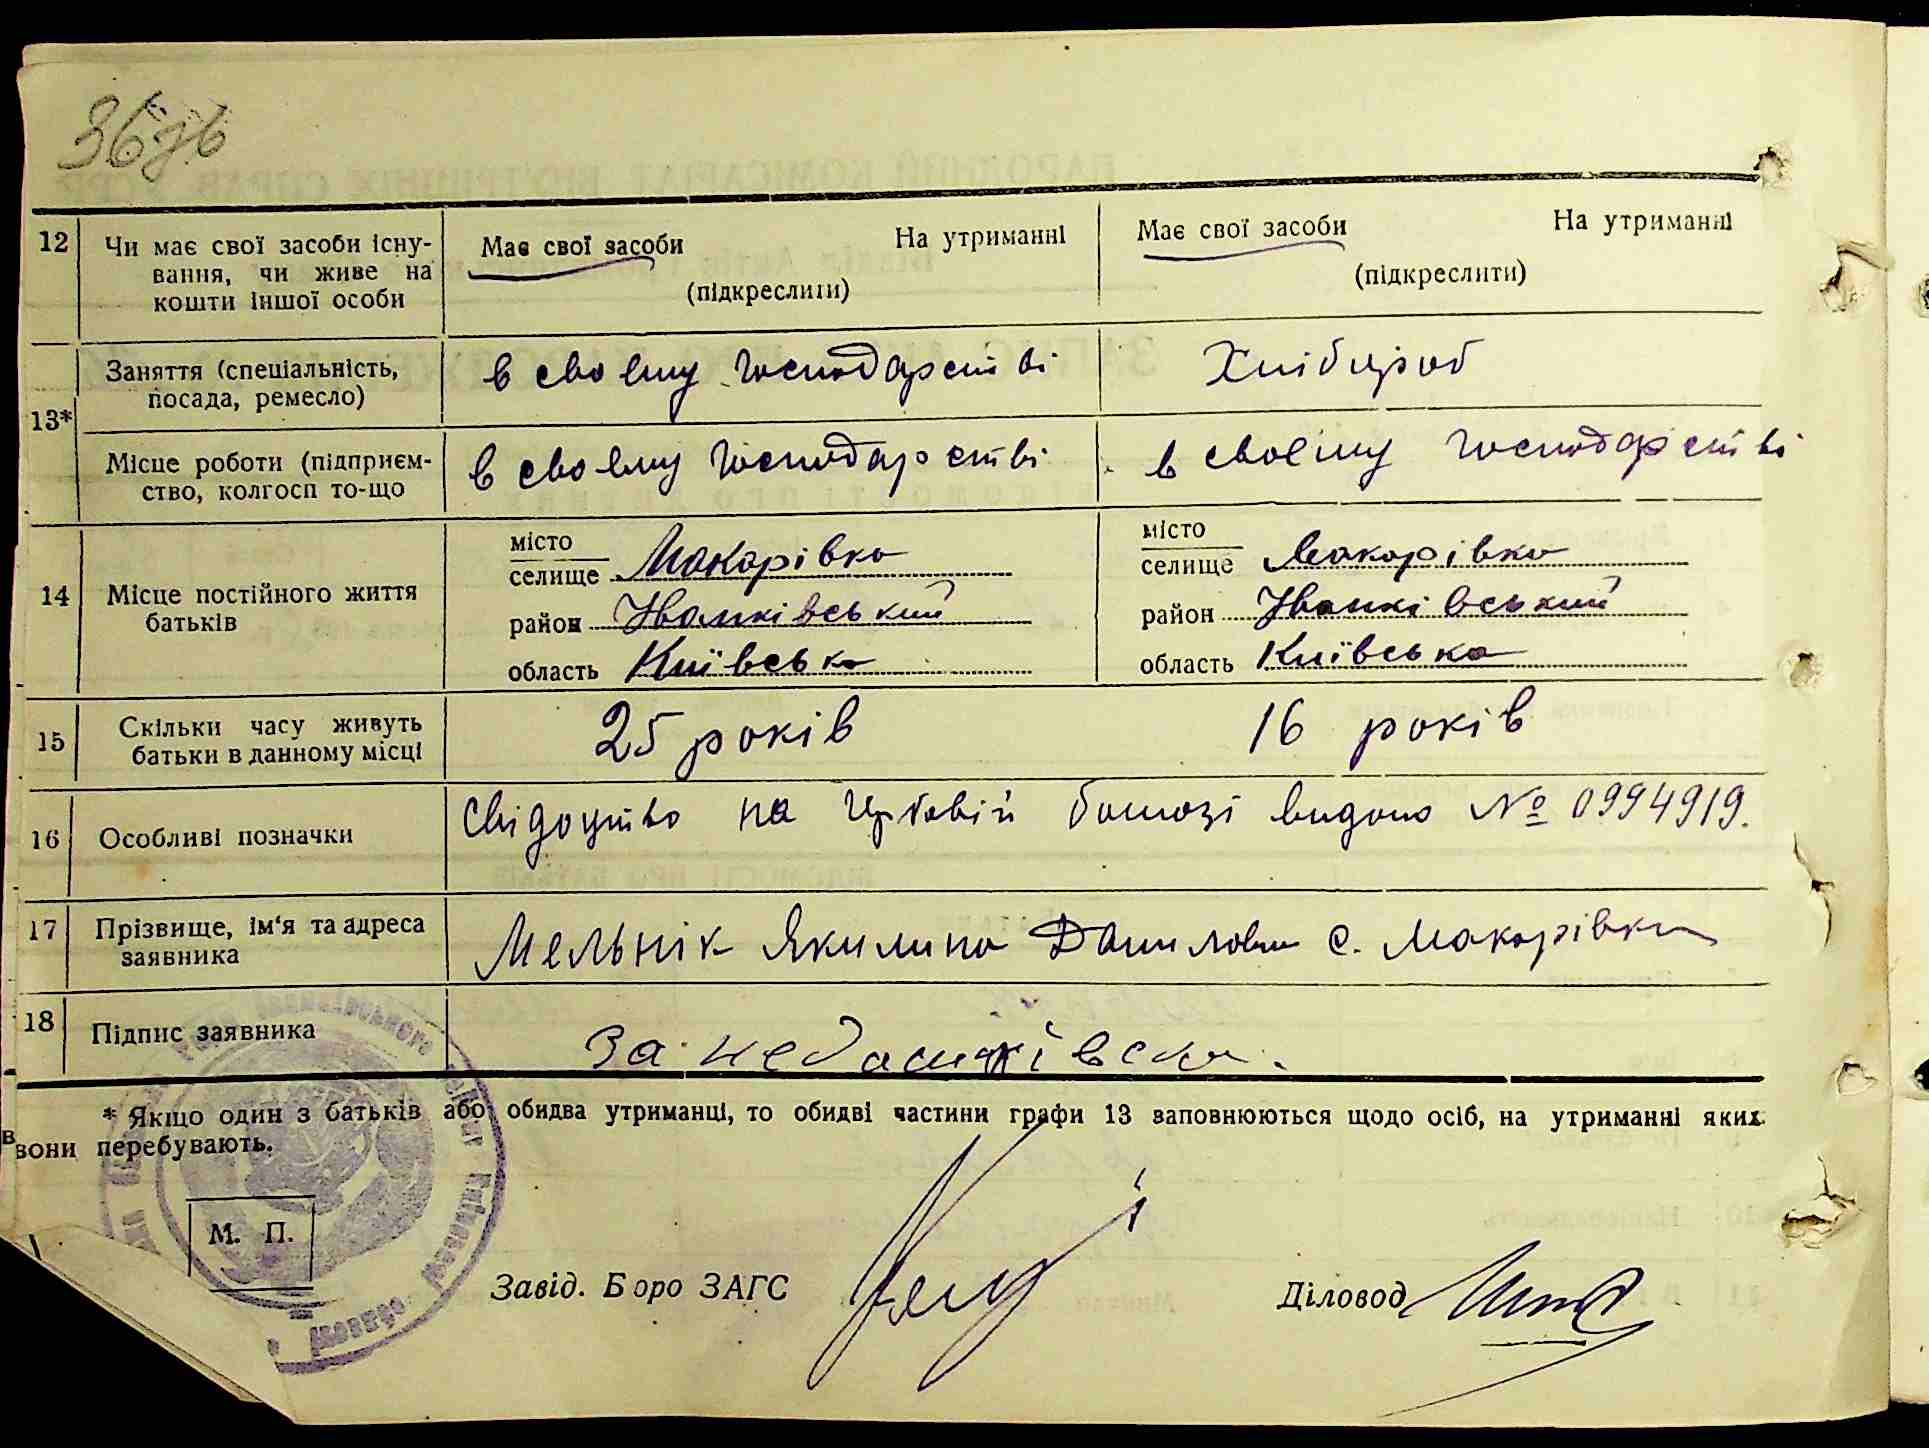 36
12 Чи має свої засоби існу- Має свої засоби На утриманні Має свої засоби На утриманні
вання, чи живе на (підкреслити) (підкреслити)
кошти іншої особи
Заняття (спеціальність, в своєму господарстві Хлібороб
посада, ремесло)
13*
Місце роботи (підприєм- в своєму господарстві в своєму господарстві
ство, колгосп то-що
14 Місце постійного життя батьків
місто
селище Макарівка
район Іванківський
область Київська
місто
селище Макарівка
район Іванківський
область Київська
15 Скільки часу живуть 25 років 16 років
батьки в данному місці
16 Особливі позначки Свідоцтво на гербовій бомазі видано № 0994919.
17 Прізвище, ім'я та адреса Мельнік Якилина Даниловна с. Макарівка
заявника
18 Підпис заявника За
* Якщо один з батьків або обидва утриманці, то обидві частини графи 13 заповнюються щодо осіб, на утриманні яких
вони перебувають.
М. П.
Завід. Бюро ЗАГС
Діловод